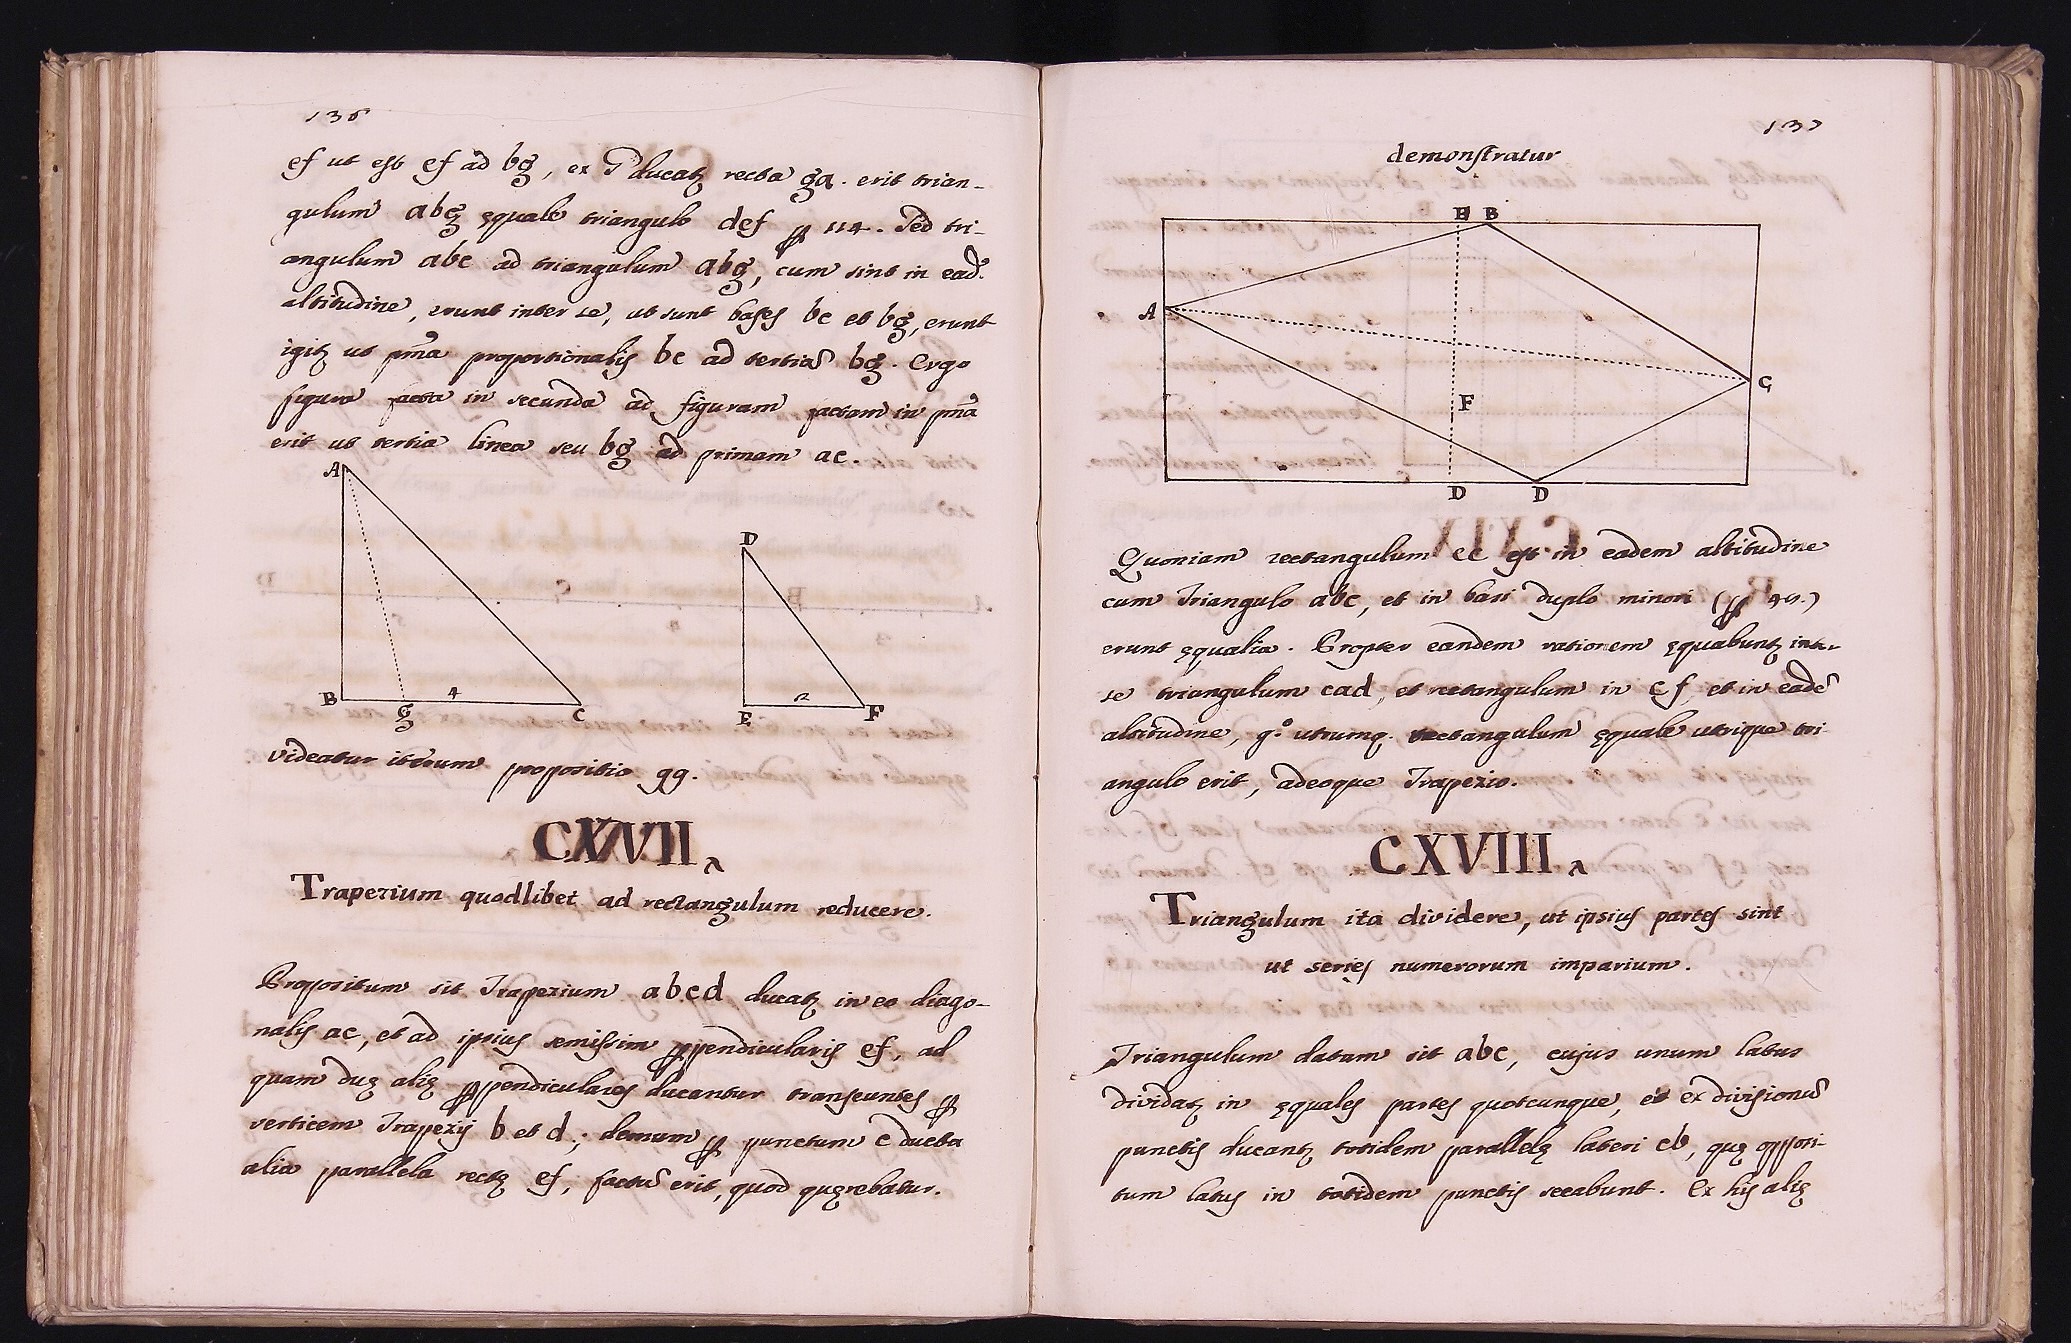 136
ef ut est ef ad bg, ex G ducatꝫ recta ga. erit trian-
gulum abg ęquale triangulo def ꝑ 114. Sed tri-
angulum abc ad triangulum abg, cum sint in eadē.
altitudine, erunt inter se, ut sunt bases bc et bg, erunt
igitꝫ ut pm̄a proportionalis bc ad tertiā bg. Ergo
figura facta in secunda ad figuram factam in pm̄a
erit ut tertia linea seu bg ad primam ac.
A
D
B g 4 C
E 2 F
videatur iterum propositio 99.
CXVII.
Trapezium quodlibet ad rectangulum reducere.
Propositum sit Trapezium abcd ducatꝫ in eo diago-
nalis ac, et ad ipsius semissim ꝑpendicularis ef, ad
quam duę alię ꝑpendiculares ducantur transeuntes ꝑ
verticem Trapezij b et d; demum ꝑ punctum c ducta
alia parallela rectę ef, factū erit, quod quęrebatur.
137
demonstratur
E B
A
C
F
D D
Quoniam rectangulum ec est in eadem altitudine
cum Triangulo abc, et in basi duplo minori (ꝑ 45.)
erunt ęqualia. Propter eandem rationem ęquabuntꝫ inter
se triangulum cad, et rectangulum in cf, et in eadē
altitudine, gͦ. utrumq. rectangulum ęquale utrique tri
angulo erit, adeoque Trapezio.
CXVIII.
Triangulum ita dividere, ut ipsius partes sint
ut series numerorum imparium.
Triangulum datum sit abc, cujus unum latus
dividatꝫ in ęquales partes quotcunque, et ex divisionū
punctis ducantꝫ totidem parallelę lateri cb, quę opposi-
tum latus in totidem punctis secabunt. Ex his alię